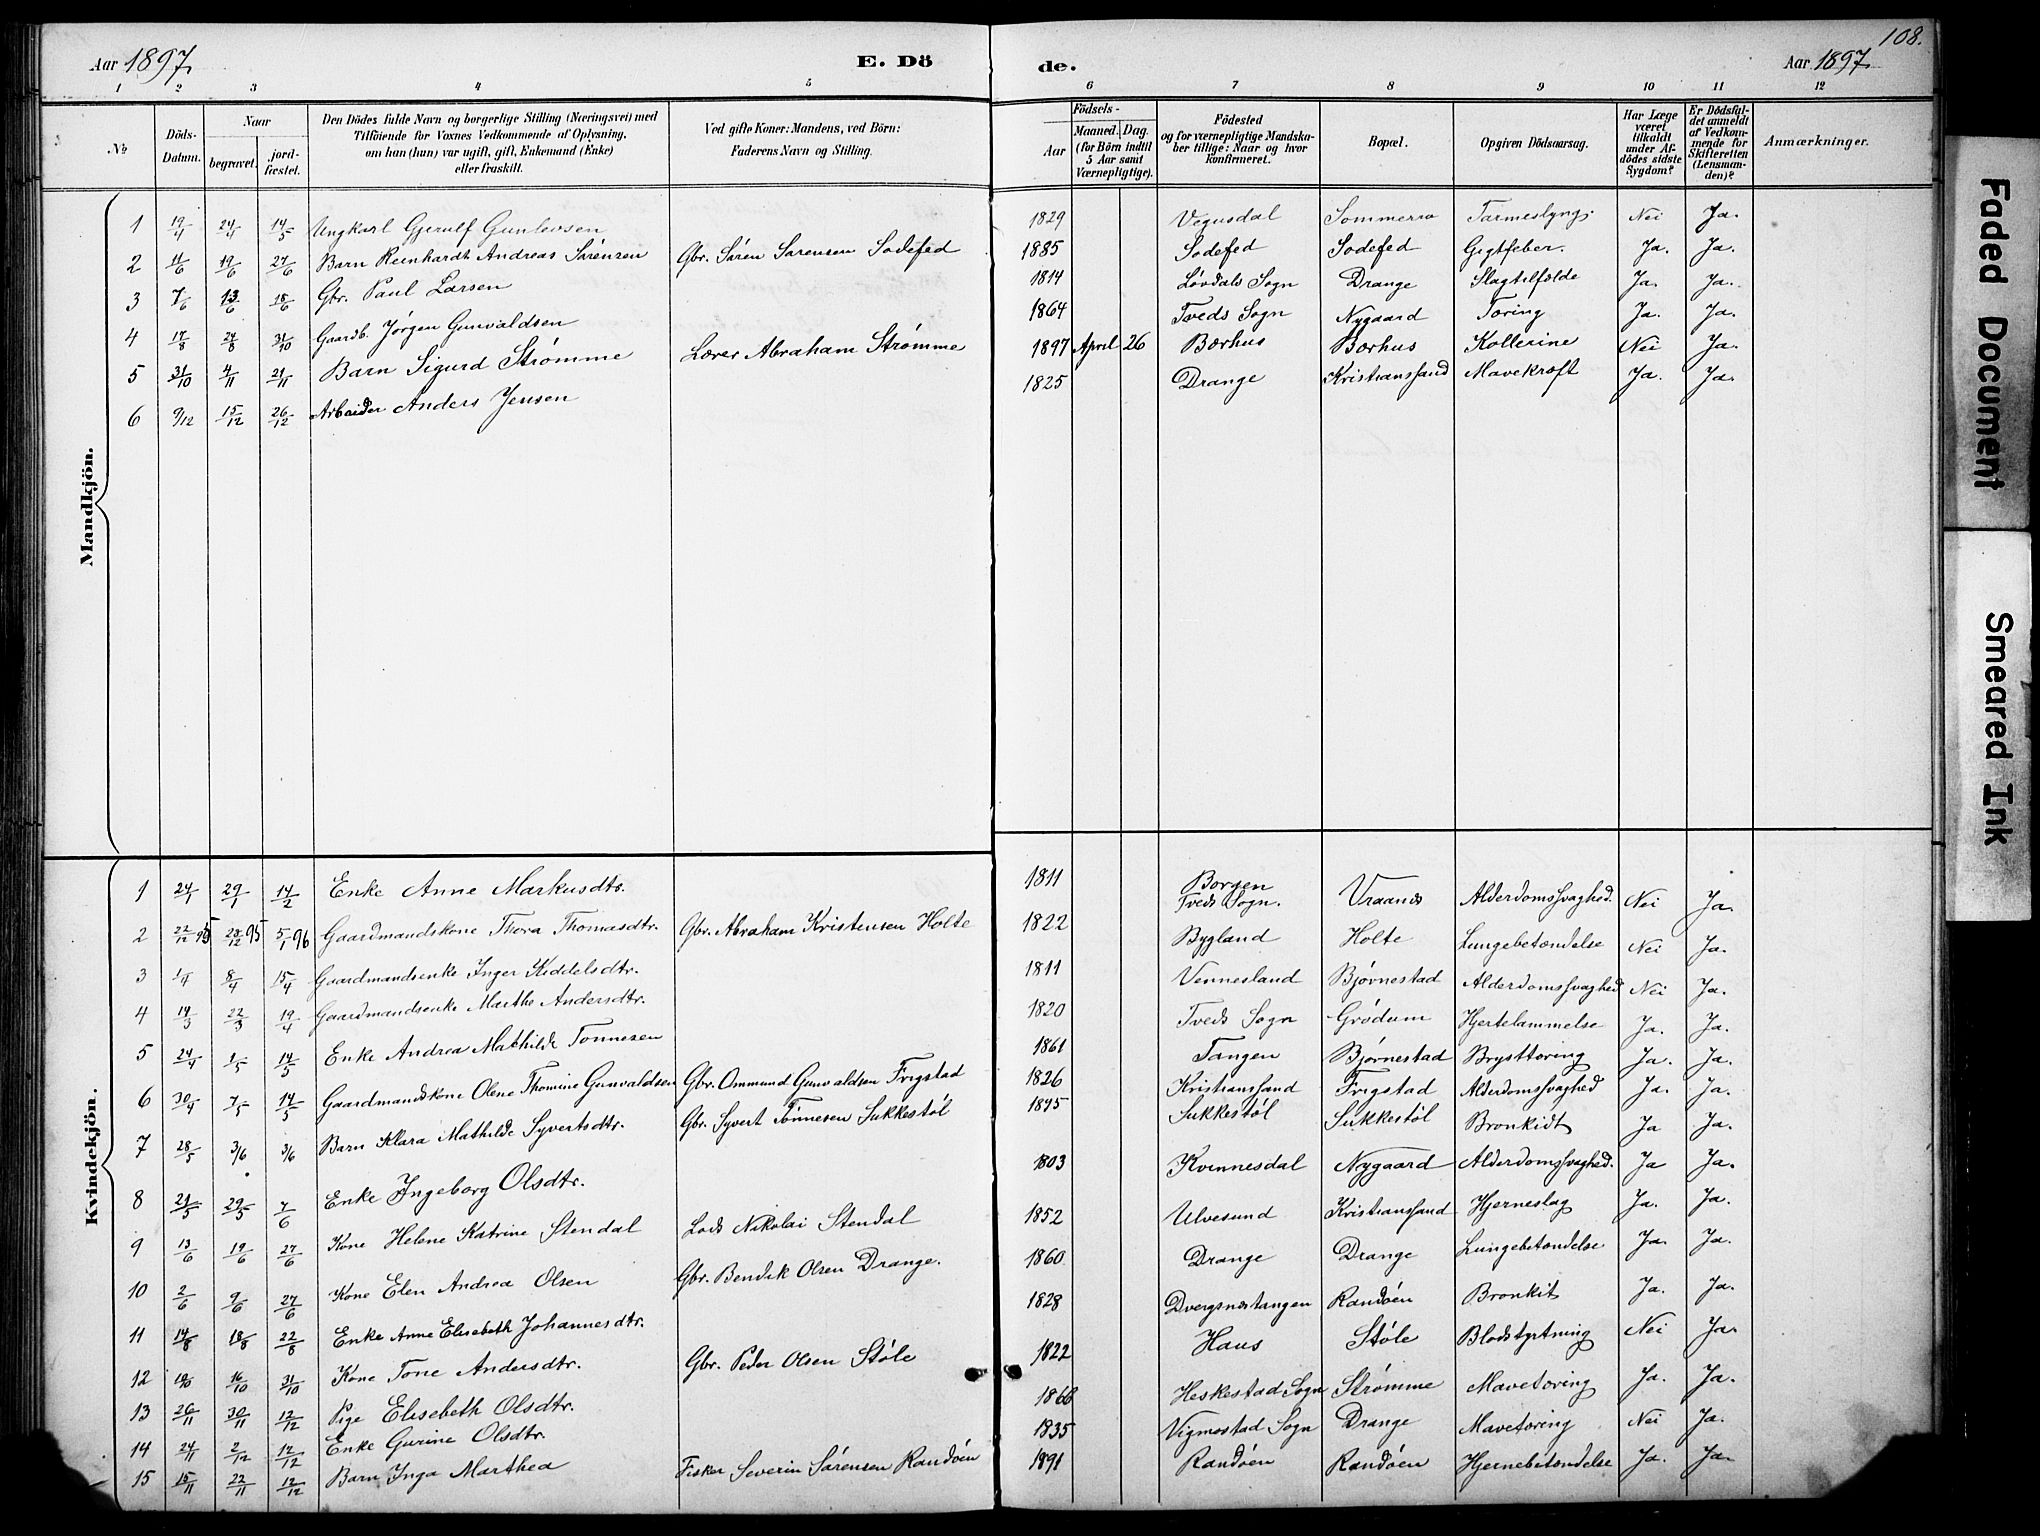 Aar 1897. E. Dö de. Aar 1897. 108.
1 2 3 4 5 6 7 8 9 10 11 12
No Döds-Datum. Naar begravet. jord-fæstet. Den Dödes fulde Navn og borgerlige Stilling (Næringsvei) med Tilföiende for Voxnes Vedkommende af Oplysning, om han (hun) var ugift, gift, Enkemand (Enke) eller fraskilt. Ved gifte Koner: Mandens, ved Börn: Faderens Navn og Stilling. Födsels- Aar Maaned. Dag. (for Börn indtil 5 Aar samt Værnepligtige). Födested og for værnepligtige Mandskaber tillige: Naar og hvor konfirmeret. Bopæl. Opgiven Dödsaarsag. Har Læge været tilkaldt under Afdödes sidste Sygdom? Er Dödsfaldet anmeldt af Vedkommende for Skifteretten (Lensmanden)? Anmærkninger.
Mandkjön.
1 19/4 24/4 14/5 Ungkarl Gjerulf Gunlevsen 1829 Vegusdal Sommerro Tarmeslyng. Nei Ja.
2 11/6 19/6 27/6 Barn Reinhardt Andreas Sørensen Gbr. Søren Sørensen Sodefed 1885 Sodefed Sodefed Gigtfeber. Ja. Ja.
3 7/6 13/6 18/6 Gbr. Paul Larsen 1814 Løvdals Sogn Drange Slagtilfælde Ja. Ja.
4 17/8 24/8 31/10 Gaardb. Jørgen Gunvaldsen 1864 Tveds Sogn Nygaard Tæring Ja. Ja.
5 31/10 4/11 21/11 Barn Sigurd Strømme Lærer Abraham Strømme 1897 April 26 Bærhus Bærhus Kollerine Nei Ja.
6 9/12 15/12 26/12 Arbeider Anders Jensen 1825 Drange Kristianssand Mavekræft Ja. Ja.
Kvindekjön.
1 24/1 29/1 14/2 Enke Anne Markusdtr. 1811 Borsen Tveds Sogn. Vraanes Alderdomssvaghed. Nei Ja.
2 22/12 95 28/12 95 5/1 96 Gaardmandskone Thora Thomasdtr. Gbr. Abraham Kristensen Holte 1822 Bygland Holte Lungebetændelse Nei Ja.
3 1/4 8/4 15/4 Gaardmandsenke Inger Kiddelsdtr. 1811 Vennesland Bjørnestad Alderdomssvaghed Nei Ja.
4 14/3 22/3 19/4 Gaardmandsenke Marthe Andersdtr. 1820 Tveds Sogn Grødum Hjertelammelse Ja. Ja.
5 24/4 1/5 14/5 Enke Andrea Mathilde Tønnesen 1861 Tangen Bjørnestad Brysttæring Ja. Ja.
6 30/4 7/5 14/5 Gaardmandskone Olene Thomine Gunvaldsen Gbr. Ommund Gunvaldsen Frigstad 1826 Kristianssand Frigstad Alderdomssvaghed Ja. Ja.
7 28/5 3/6 3/6 Barn Klara Mathilde Syvertsdtr. Gbr. Syvert Tønnesen Sukkestøl 1895 Sukkestøl Sukkestøl Bronkidt Ja Ja.
8 21/5 29/5 7/6 Enke Ingeborg Olsdtr. 1803 Kvinnesdal Nygaard Alderdomssvaghed. Ja Ja.
9 13/6 19/6 27/6 Kone Helene Katrine Stendal Lods Nikolai Stendal 1852 Ulvesund Kristianssand Hjerneslag Ja. Ja.
10 2/6 9/6 27/6 Kone Elen Andrea Olsen Gbr. Bendik Olsen Drange. 1860 Drange Drange Lungebetændelse Ja. Ja.
11 14/8 18/8 22/8 Enke Anne Elisebeth Johannesdtr. 1828 Dvergsnestangen Randøen Bronkit Ja. Ja.
12 10/10 16/10 31/10 Kone Tone Andersdtr. Gbr. Peder Olsen Støle 1822 Haus Støle Blodstyrtning Nei Ja.
13 26/11 30/11 12/12 Pige Elisebeth Olsdtr. 1866 Heskestad Sogn Strømme Mavetæring Ja. Ja.
14 24/11 2/12 12/12 Enke Gurine Olsdtr. 1835 Vigmostad Sogn Drange Mavetæring Nei Ja.
15 15/11 22/11 12/12 Barn Inga Marthea Fisker Severin Sørensen Randøen 1891 Randøen Randøen Hjernebetændelse Ja. Ja.
Faded Document
Smeared Ink